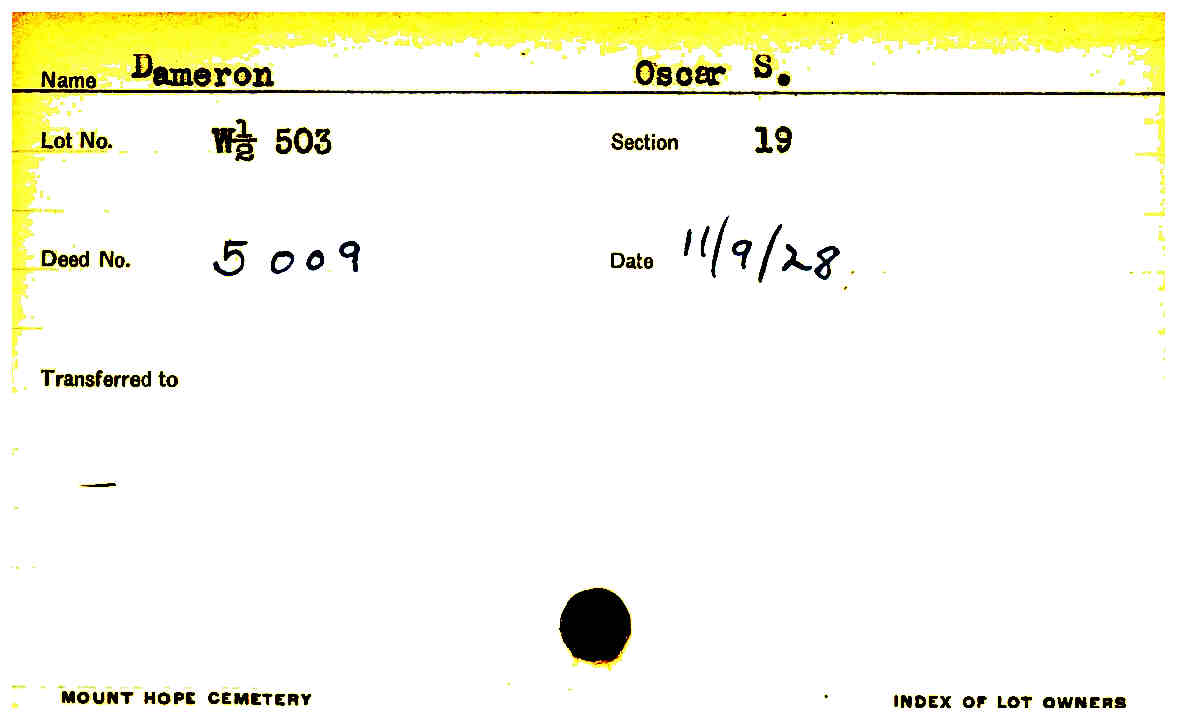 Name Dameron Oscar S.
Lot No. W½ 503 Section 19
Deed No. 5009 Date 11/9/28
Transferred to
—
MOUNT HOPE CEMETERY INDEX OF LOT OWNERS